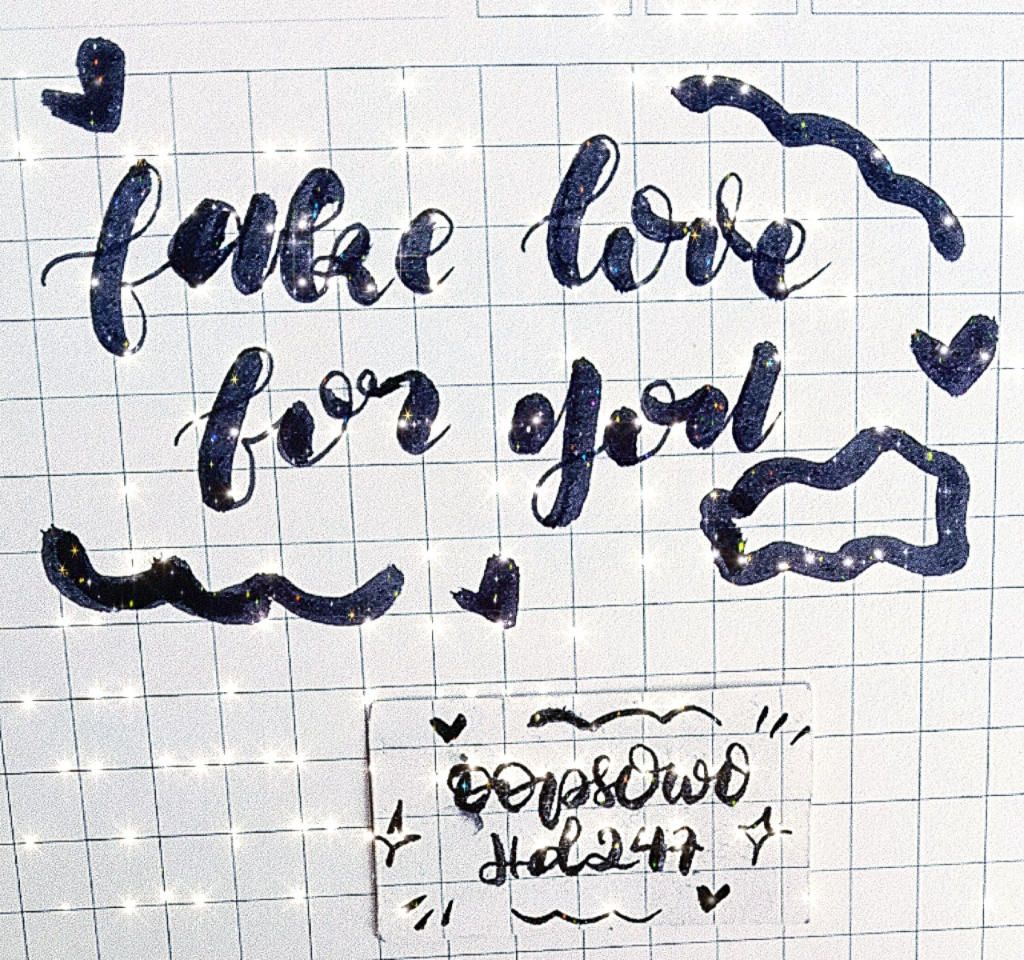 fake love
for you
oopsOwO
Hd247